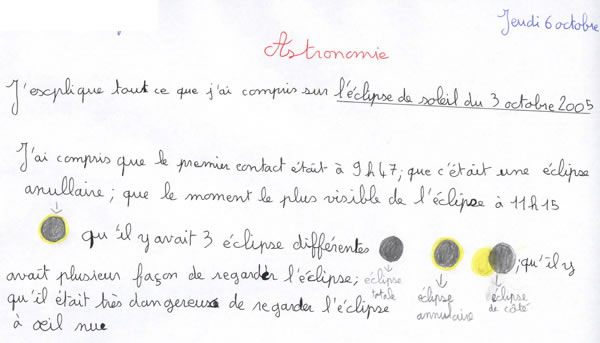 Jeudi 6 octobre
Astronomie
J'esxplique tout ce que j'ai compris sur l'éclipse de soleil du 3 octobre 2005
J'ai compris que le premier contact était à 9h47; que c'était une éclipse
anullaire; que le moment le plus visible de l'éclipse à 11h15
qu'il y avait 3 éclipse différentes ;qu'il y
avait plusieur façon de regarder l'éclipse;
éclipse totale
éclipse annulaire
éclipse de côté
qu'il était très dangereuse de regarder l'éclipse
à œil nue